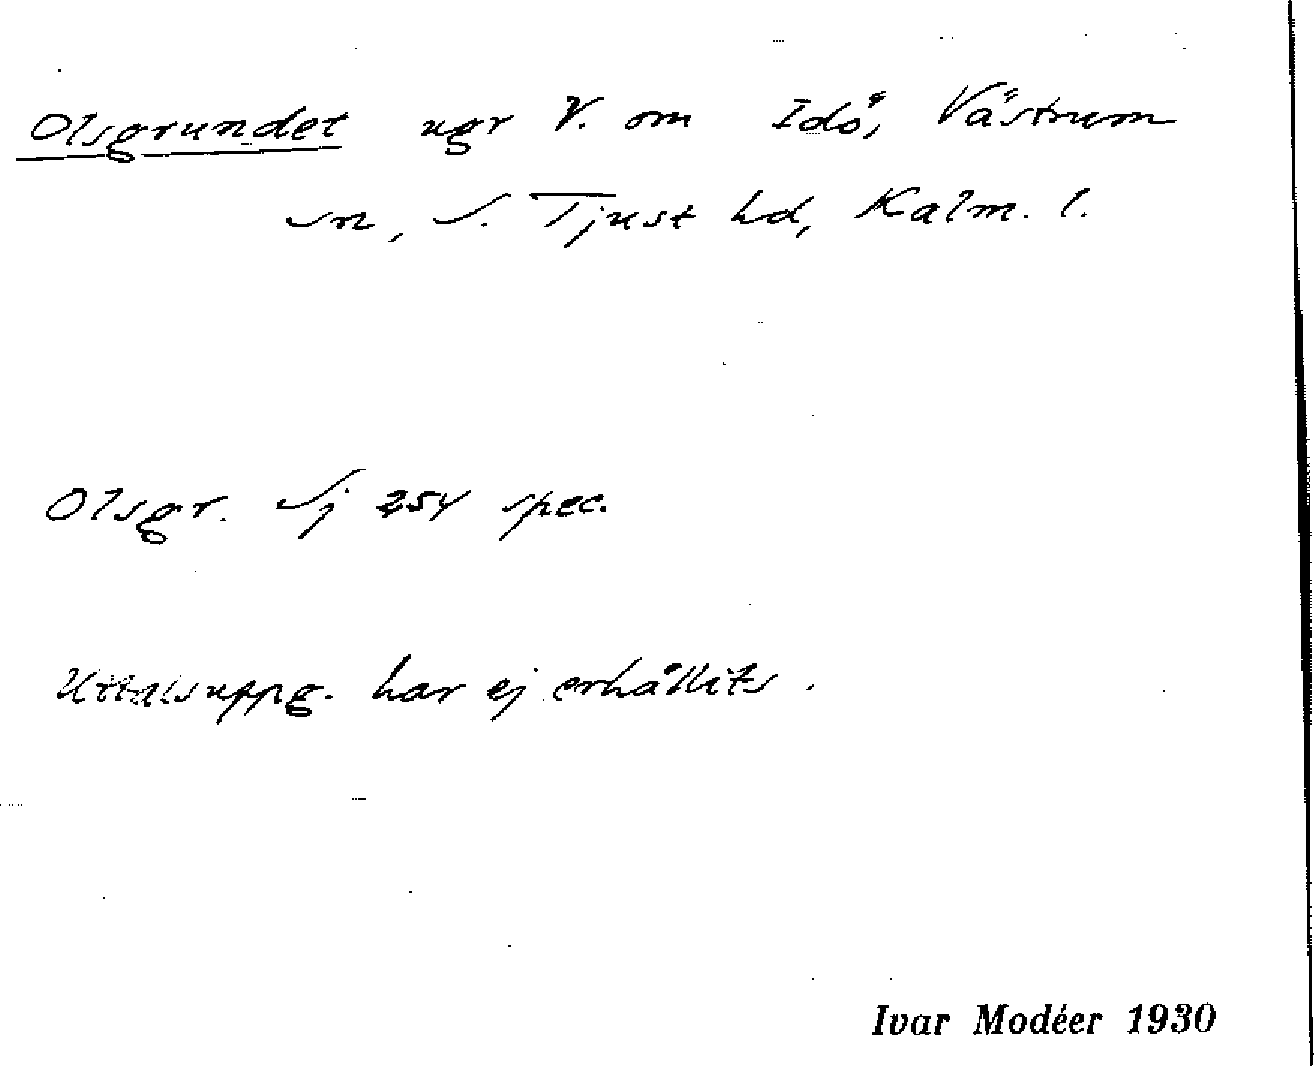 Olsgrundet ugr V. om Idö, Västrum
sn, S. Tjust hd, Kalm. l.
Olsgr. Sj 254 spec.
Uttalsuppg. har ej erhållits.
Ivar Modéer 1930